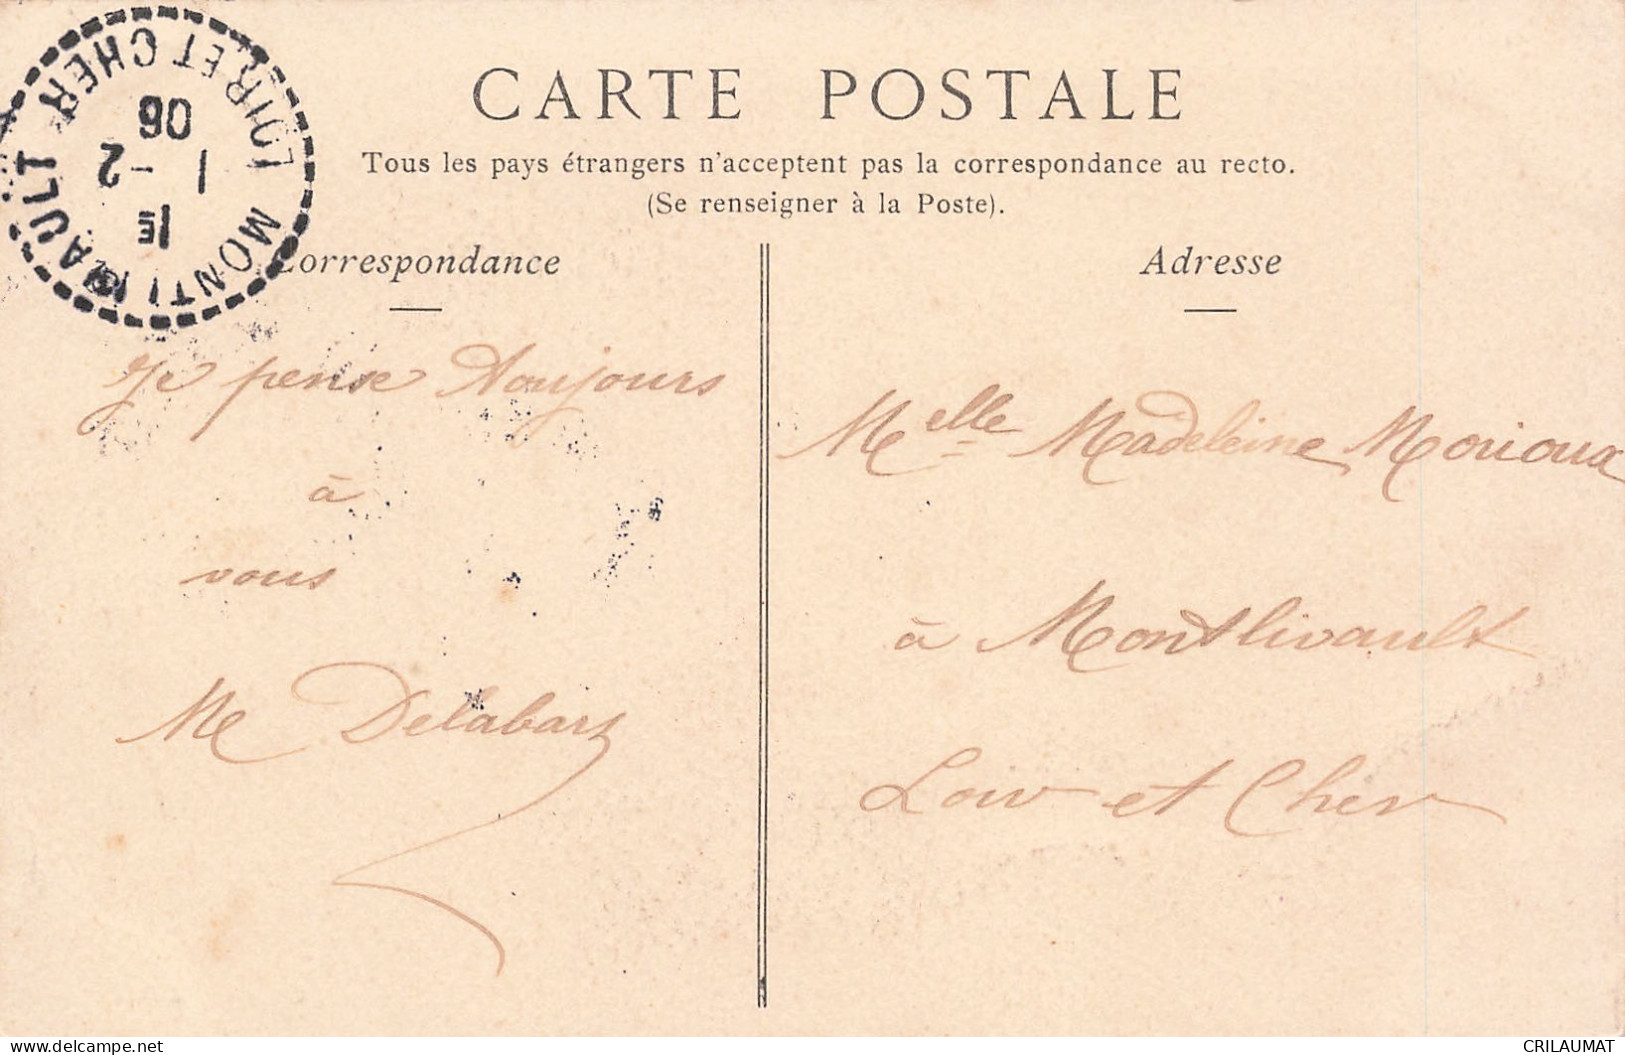 CARTE POSTALE
Tous les pays étrangers n'acceptent pas la correspondance au recto.
(Se renseigner à la Poste).
Correspondance
Adresse
MONTLIVAULT
LOIR ET CHER
1E
1-2
06
Je pense toujours
à
vous
Me Delabarz
Melle Madeleine Morioux
à Montlivault
Loir et Cher
delcampe.net
CRILAUMAT